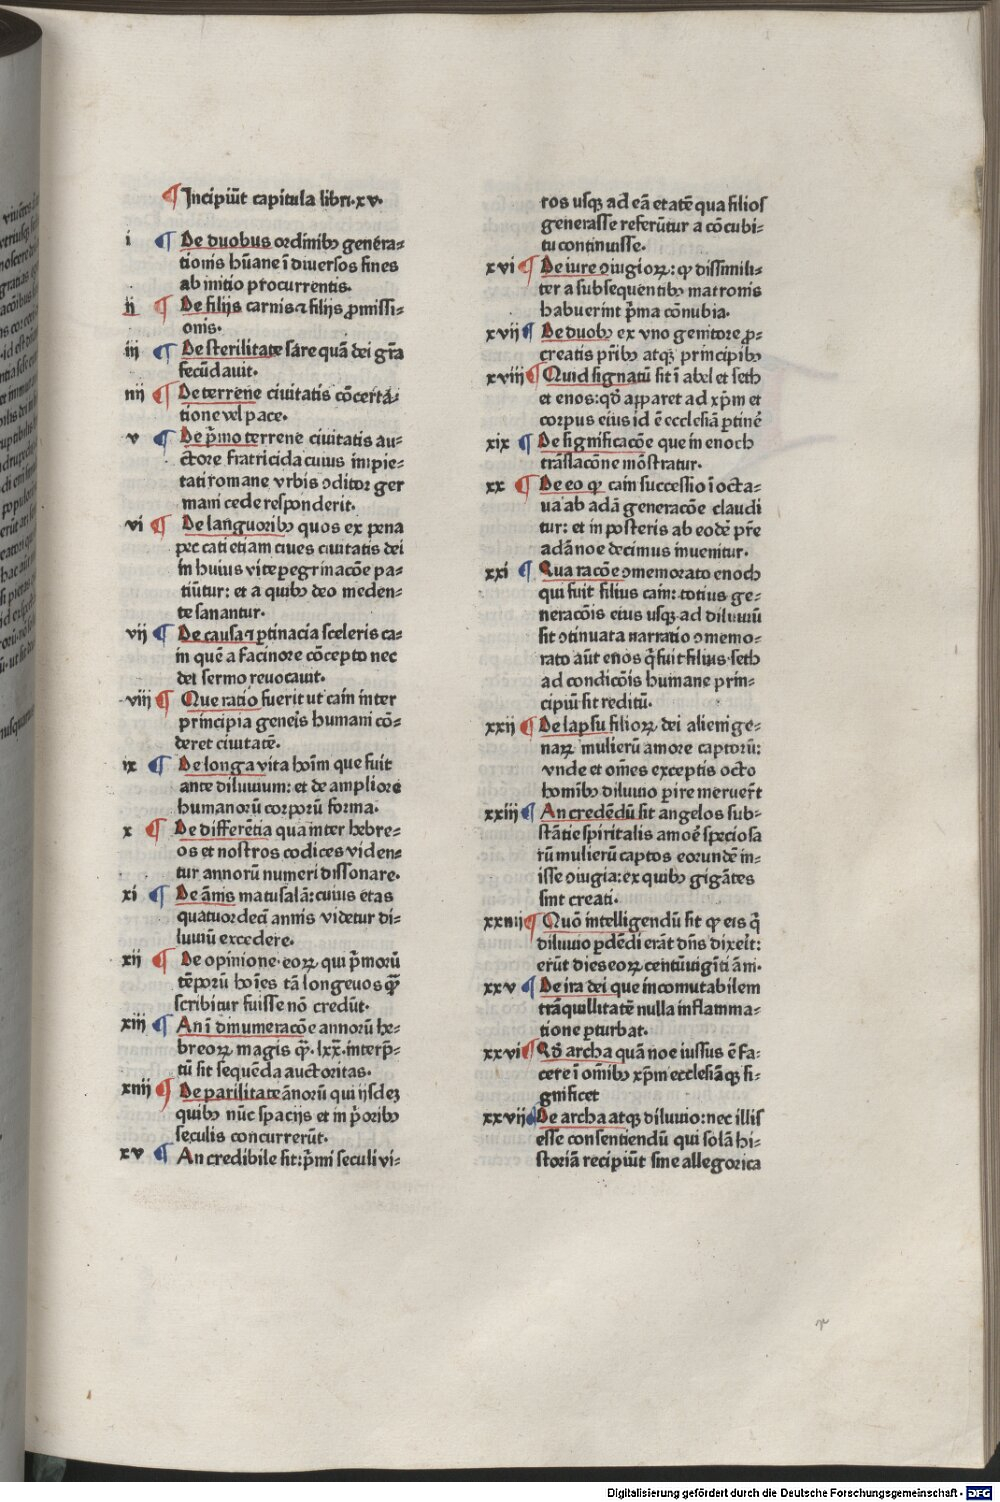 ¶ Incipiūt capitula libri·xv·
i ¶ De duobus ordinibꝯ genera⸗
tionis hūane ī diuersos fines
ab initio procurrentis.
ij ¶ De filijs carnis ⁊ filijs ꝓmissi⸗
onis·
iij ¶ De sterilitate sare quā dei gr̄a
fecūdauit·
iiij ¶ De terrene ciuitatis cōcerta⸗
tione vel pace·
v ¶ De p̄mo terrene ciuitatis au⸗
ctore fratricida cuius impie⸗
tati romane vrbis ↄditor ger
mani cede responderit·
vi ¶ De languoribꝯ quos ex pena
peccati etiam ciues ciuitatis dei
in huius vite peregrinacōe pa⸗
tiūtur: et a quibꝯ deo meden⸗
te sanantur·
vij ¶ De causa ⁊ ꝑtinacia sceleris ca⸗
in quē a facinore cōcepto nec
dei sermo reuocauit·
viij ¶ Que ratio fuerit ut cain inter
principia generis humani cō⸗
deret ciuitatē·
ix ¶ De longa vita hoīm que fuit
ante diluuium: et de ampliore
humanorū corporū forma·
x ¶ De differētia qua inter hebre⸗
os et nostros codices viden⸗
tur annorū numeri dissonare·
xi ¶ De ānis matusalā: cuius etas
quatuordecī annis videtur di⸗
luuiū excedere·
xij ¶ De opinione· eoꝝ qui p̄morū
tēporū hoīes tā longeuos q̄ꝫ
scribitur fuisse nō credūt·
xiij ¶ An ī dinumeracōe annorū he⸗
breoꝝ magis q̄ꝫ·lxx̄·interp̄⸗
tū sit sequēda auctoritas·
xiiij ¶ De parilitate ānorū qui ijsdeꝫ
quibꝯ nūc spacijs et in p̄oribꝯ
seculis concurrerūt·
xv ¶ An credibile sit: p̄mi seculi vi⸗
ros usqꝫ ad eā etatē qua filios
generasse referūtur a cōcubi⸗
tu continuisse·
xvi ¶ De iure ↄiugioꝝ: qꝫ dissimili⸗
ter a subsequentibꝯ matronis
habuerint p̄ma cōnubia·
xvij ¶ De duobꝯ ex vno genitore ꝓ⸗
creatis p̄ribꝯ atqꝫ principibꝯ
xviij ¶ Quid signatū sit ī abel et seth
et enos: qd̄ apparet ad xp̄m et
corpus eius id ē ecclesiā ꝑtinē
xix ¶ De significacōe que in enoch
trāslacōne mōstratur·
xx ¶ De eo qꝫ cain successio ī octa⸗
ua ab adā generacōe claudi
tur: et in posteris ab eodē p̄re
adā noe decimus inuenitur·
xxi ¶ Qua racōe ↄmemorato enoch
qui fuit filius cain: totius ge⸗
neracōis eius usqꝫ ad diluuiū
sit ↄtinuata narratio ↄmemo⸗
rato aūt enos q̄ fuit filius seth
ad condicōis humane prin⸗
cipiū sit reditū·
xxij ¶ De lapsu filioꝝ dei alienige⸗
naꝝ mulierū amore captorū:
vnde et om̄es exceptis octo
homībꝯ diluuio ꝑire meruer̄t
xxiij ¶ An credēdū sit angelos sub⸗
stātie spiritalis amoē speciosa
rū mulierū captos eorundē in⸗
isse ↄiugia: ex quibꝯ gigātes
sint creati·
xxiiij ¶ Quō intelligendū sit qꝫ eis q̄
diluuio ꝑdēdi erāt dn̄s dixeit:
erūt dies eoꝝ centūuigīti āni·
xxv ¶ De ira dei que incomutabilem
trāquillitatē nulla inflamma⸗
tione ꝑturbat·
xxvi ¶ Qd̄ archa quā noe iussus ē fa⸗
cere ī omībꝯ xp̄m ecclesiāqꝫ si⸗
gnificet
xxvij ¶ De archa atqꝫ diluuio: nec illis
esse consentiendū qui solā hi⸗
storiā recipiūt sine allegorica
Digitalisierung gefördert durch die Deutsche Forschungsgemeinschaft - DFG